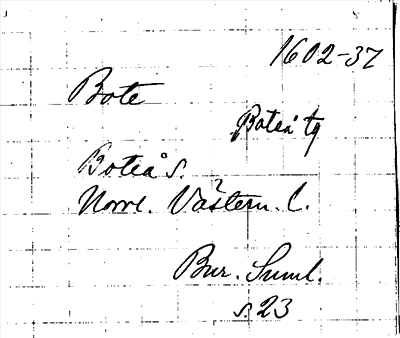 1602-37
Bote
Boteå tg
Boteå s.
Norrl. Västern. l.
Bur. Suml.
s. 23